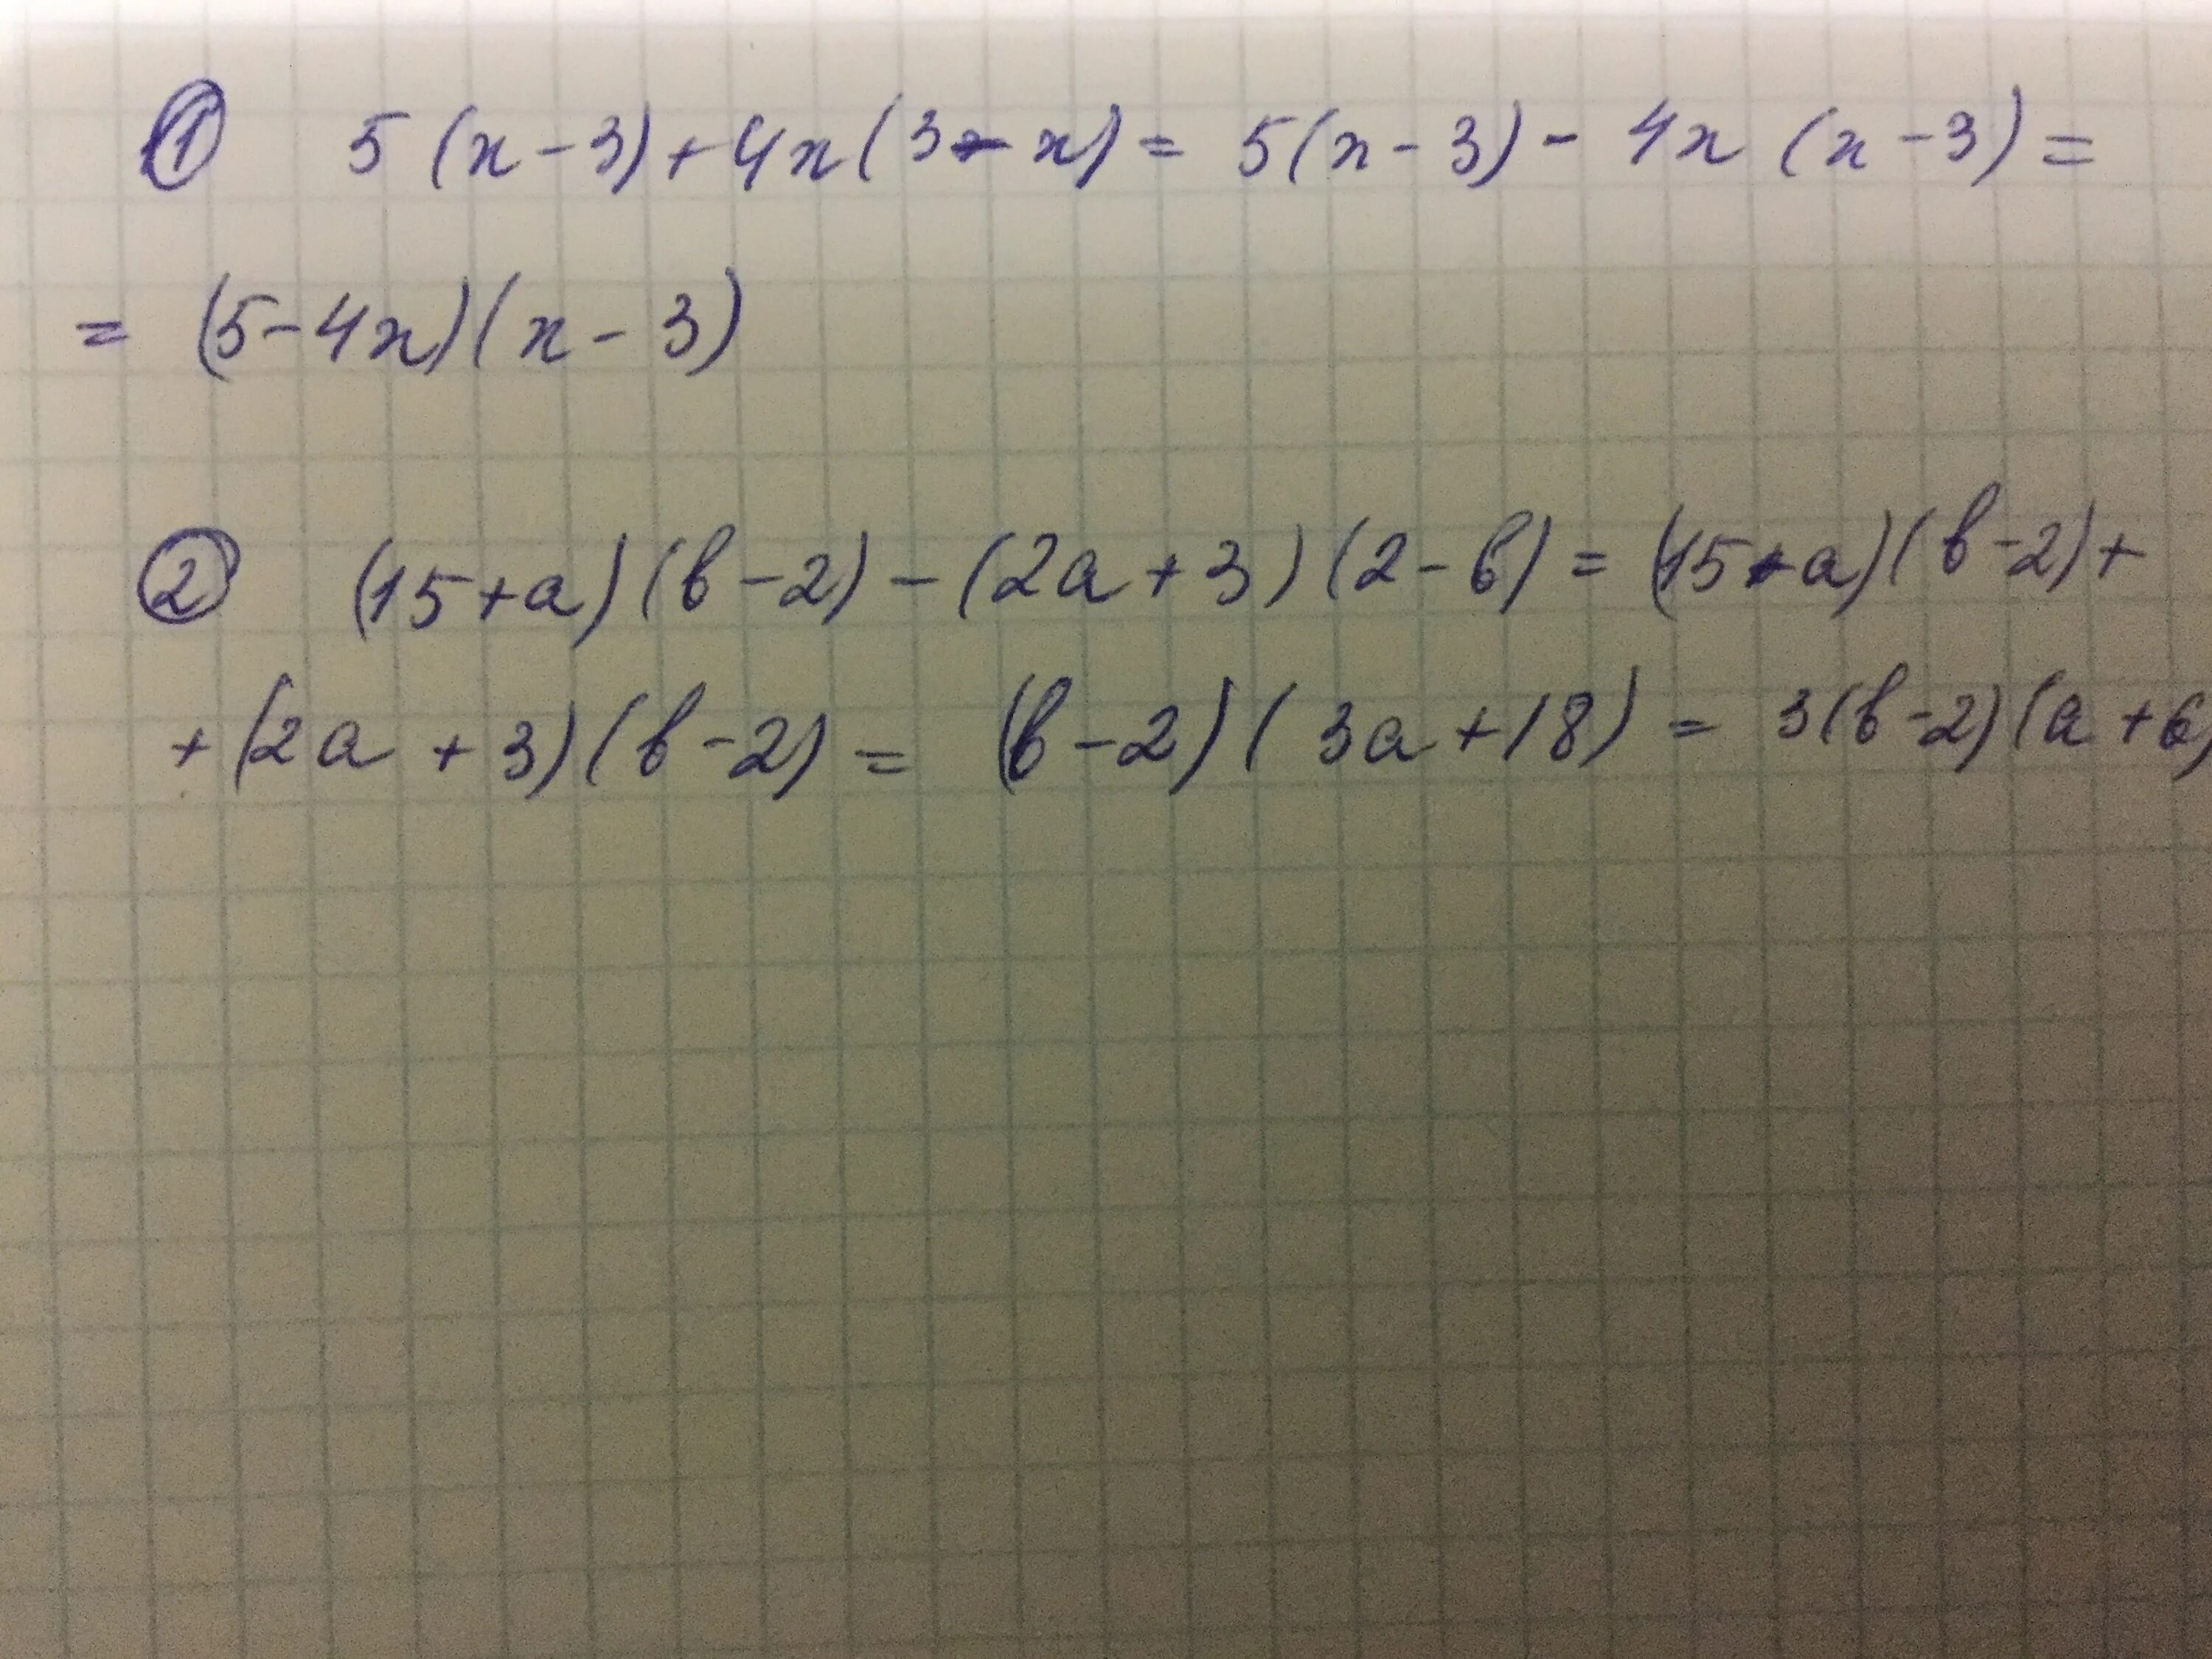 ① 5(x-3)+4x(3-x)=5(x-3)-4x(x-3)=
=(5-4x)(x-3)
② (15+a)(b-2)-(2a+3)(2-b)=(15+a)(b-2)+
+(2a+3)(b-2)=(b-2)(3a+18)=3(b-2)(a+6)